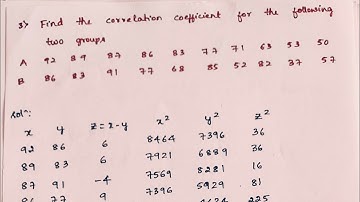 3) Find the correlation coefficient for the following
two groups
A 92 89 87 86 83 77 71 63 53 50
B 86 83 91 77 68 85 52 82 37 57
Solⁿ:
x y z = x-y x² y² z²
92 86 6 8464 7396 36
89 83 6 7921 6889 36
87 91 -4 7569 8281 16
77 9 7396 5929 81
225